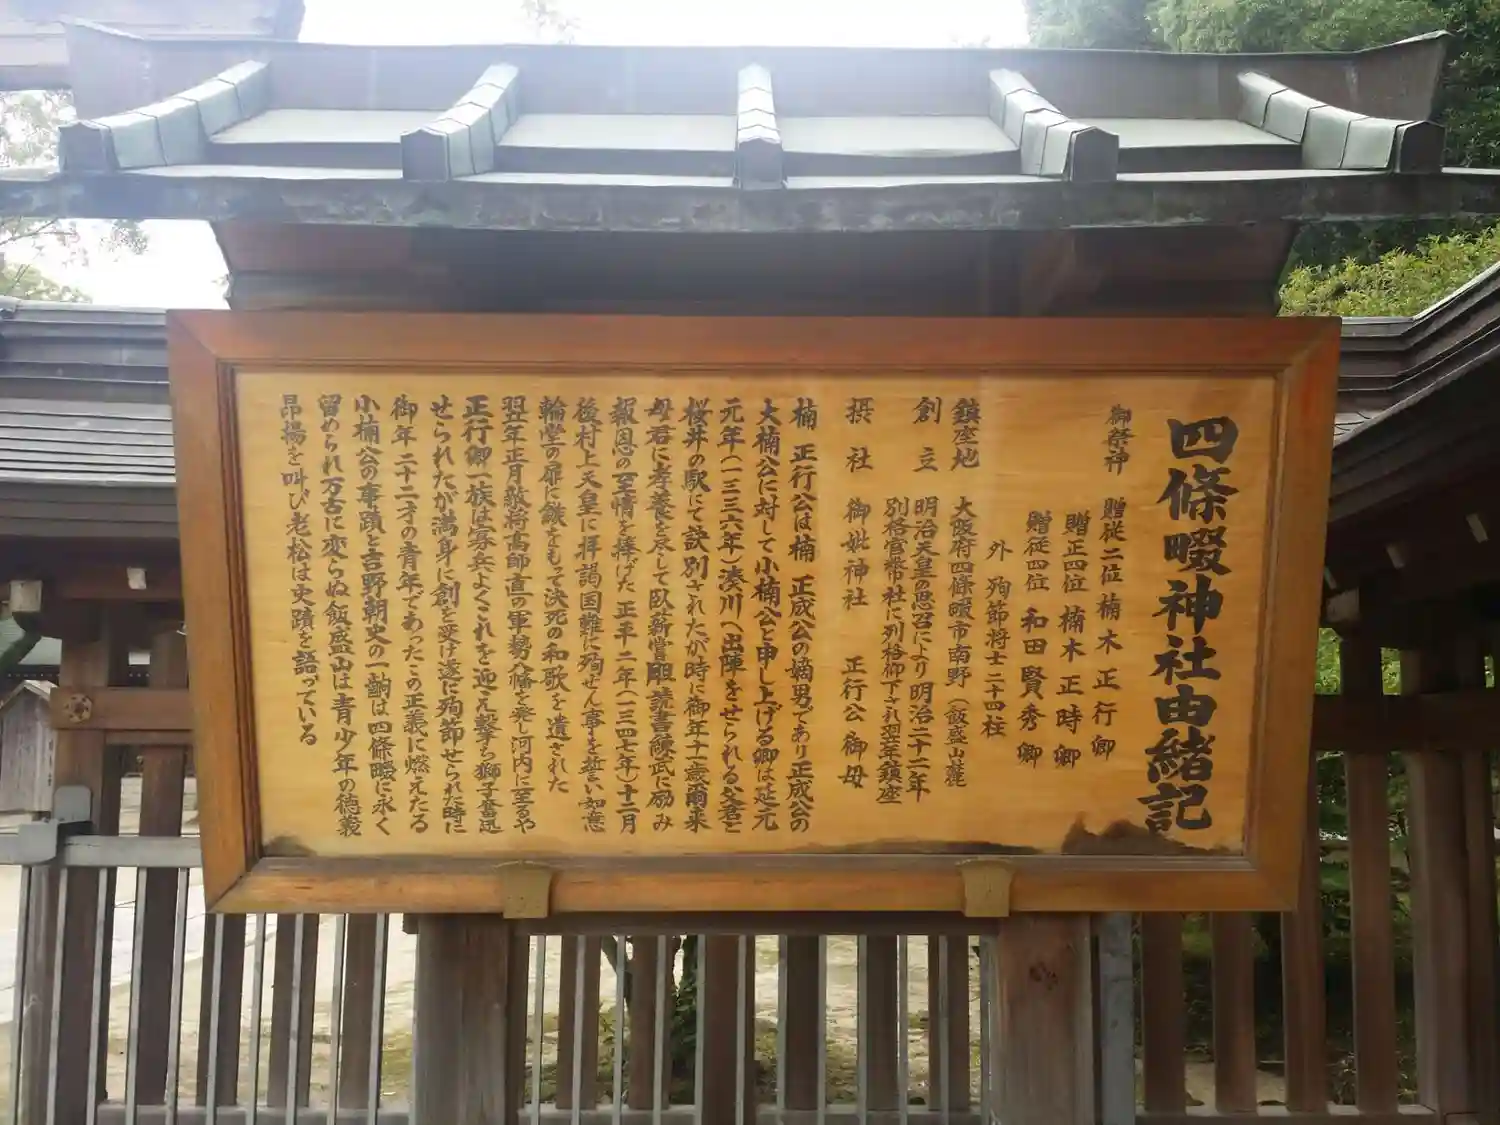 四條畷神社由緒記
御祭神 贈従二位 楠木 正行 卿
贈正四位 楠木 正時 卿
贈従四位 和田 賢秀 卿
外 殉節将士二十四柱
鎮座地 大阪府四條畷市南野(飯盛山麓
創立 明治天皇の思召により明治二十二年
別格官幣社に列格仰下され翌年鎮座
摂社 御妣神社 正行公御母
楠 正行公は楠 正成公の嫡男であり正成公の
大楠公に対して小楠公と申し上げる卿は延元
元年(一三三六年)湊川へ出陣をせられる父君と
桜井の駅にて訣別されたが時に御年十一歳爾来
母君に孝養を尽して臥薪嘗胆読書錬武に励み
報恩の至情を捧げた 正平二年(一三四七年)十二月
後村上天皇に拝謁国難に殉ぜん事を誓い如意
輪堂の扉に鏃をもって決死の和歌を遺された
翌年正月敵将高師直の軍勢八幡を発し河内に至るや
正行卿一族は寡兵よくこれを迎え撃ち獅子奮迅
せられたが満身に創を受け遂に殉節せられた時に
御年二十二才の青年であったこの正義に燃えたる
小楠公の事蹟と吉野朝史の一齣は四條畷に永く
留められ万古に変らぬ飯盛山は青少年の徳義
昂揚を叫び老松は史蹟を語っている